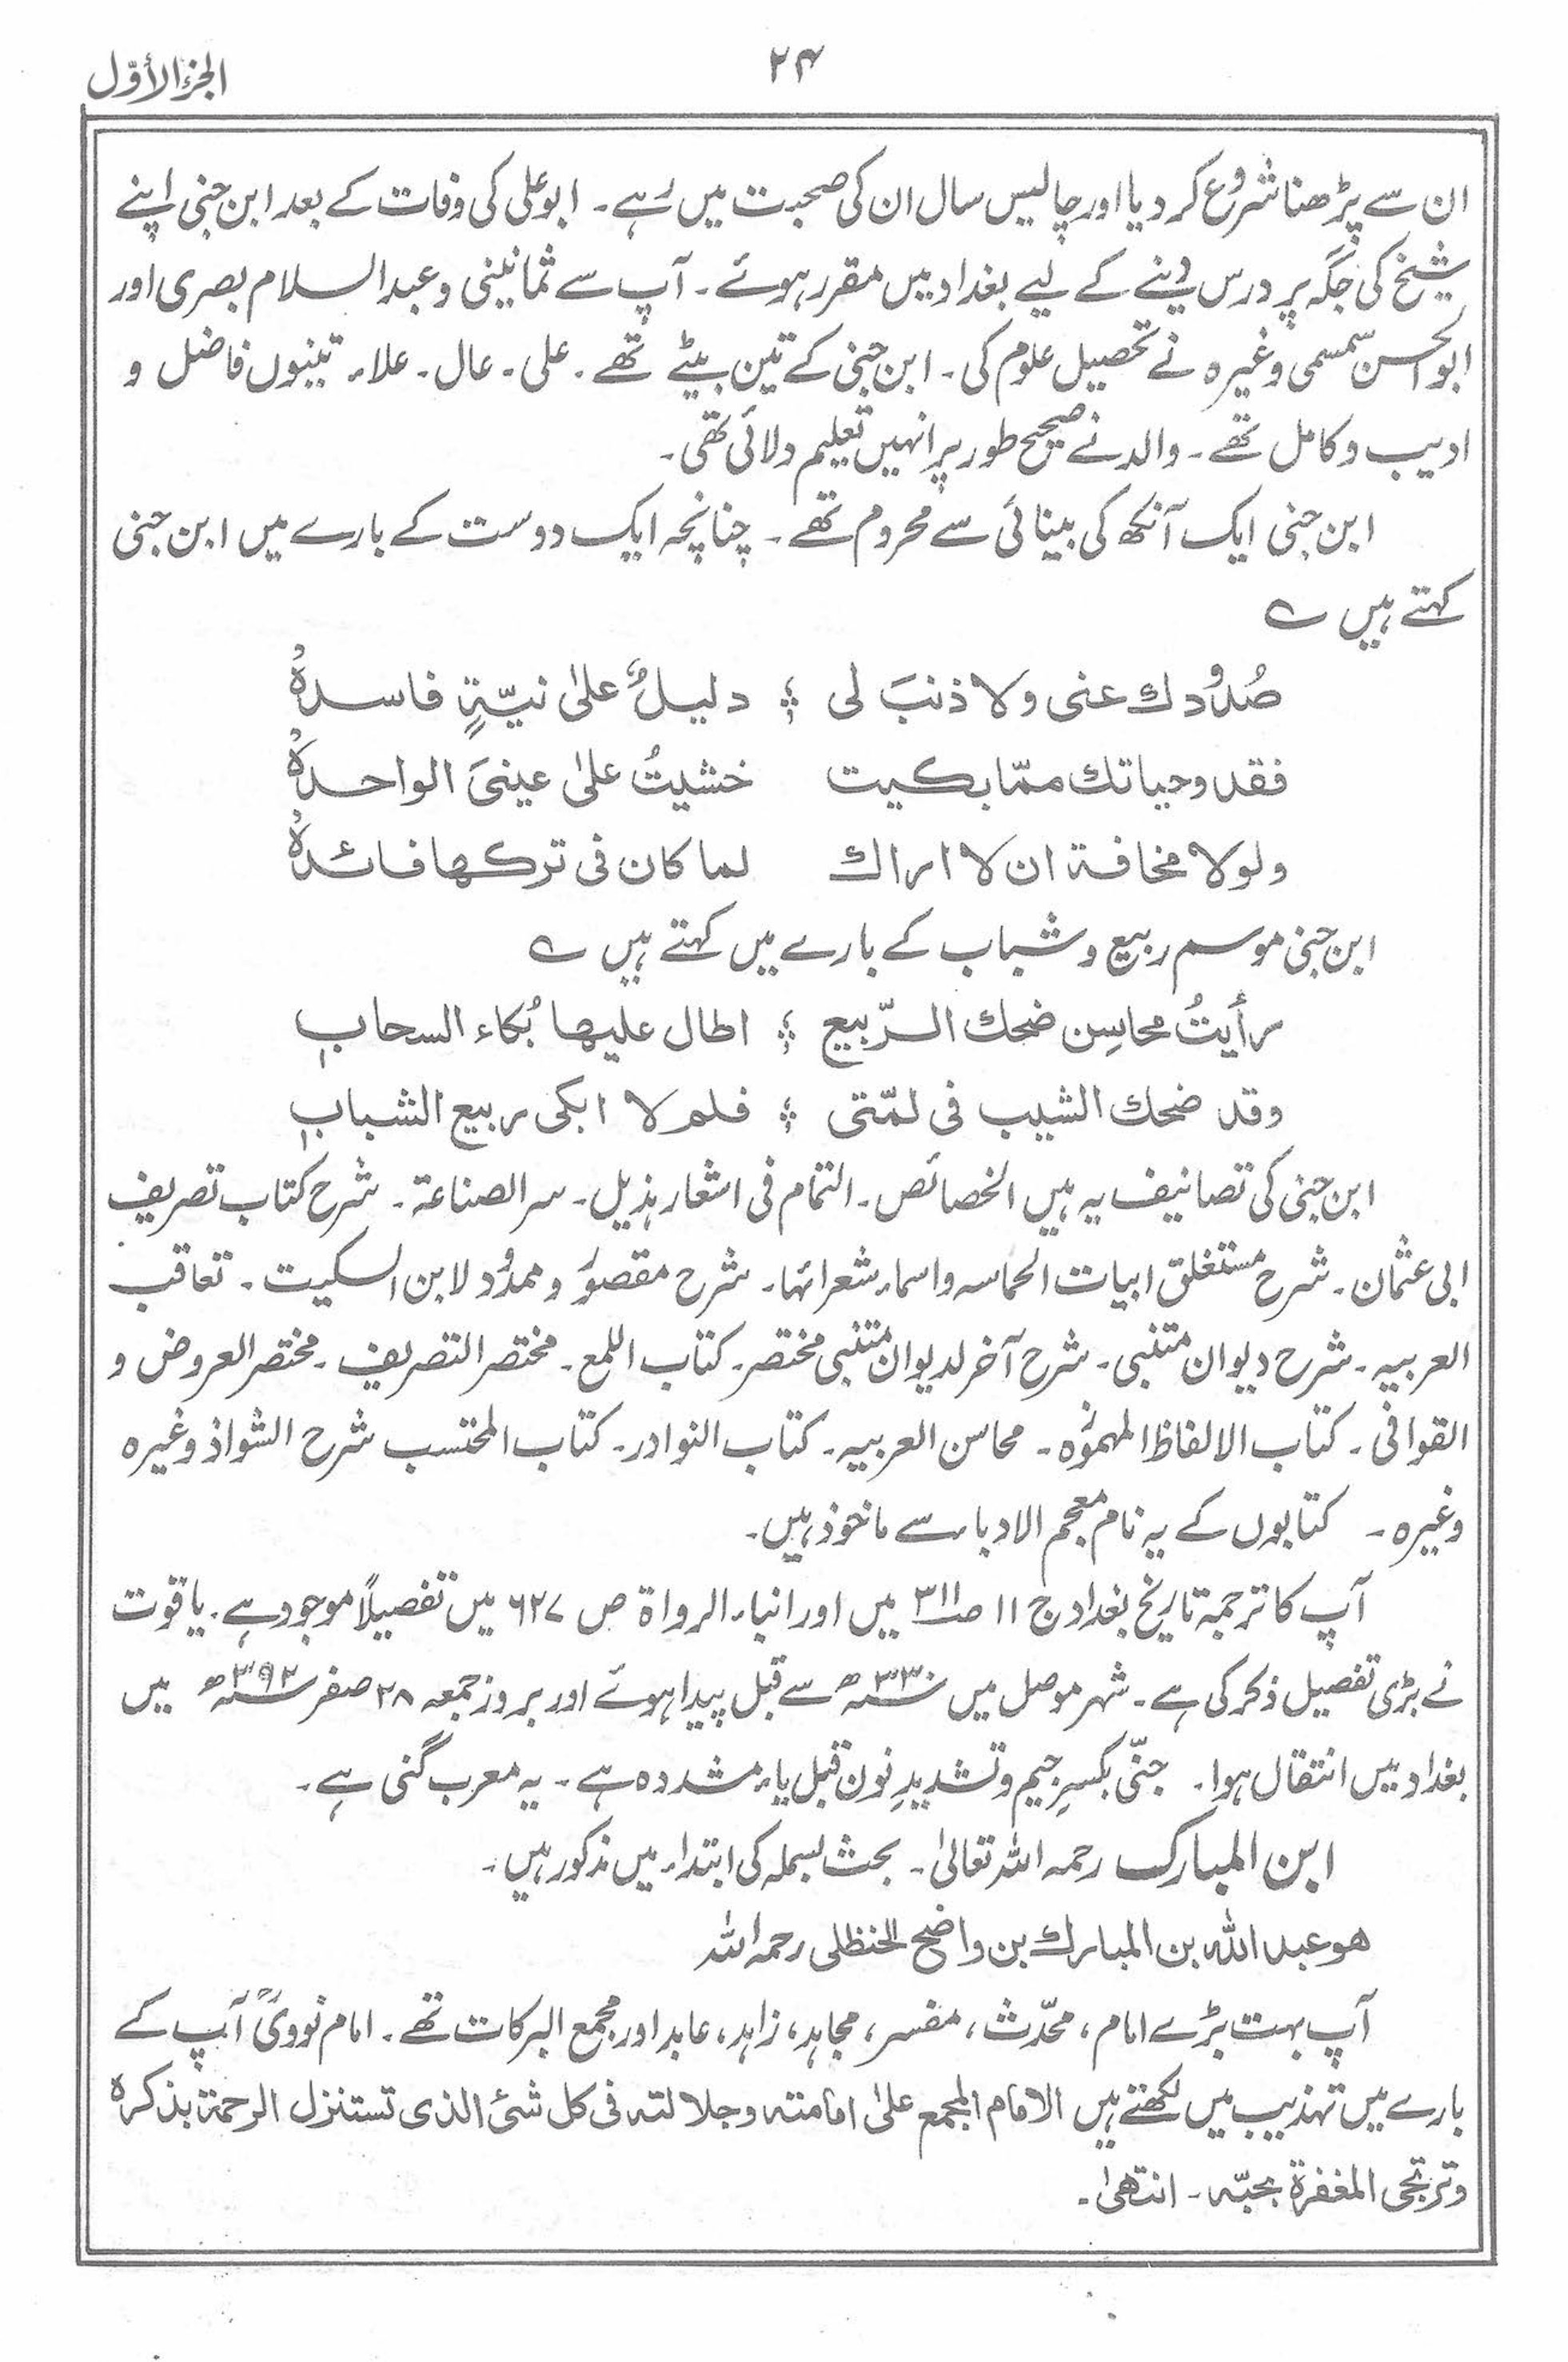 ۲۴
الجزء الأوّل
ان سے پڑھنا شروع کر دیا اور چالیس سال ان کی صحبت میں رہے ۔ ابو علی کی وفات کے بعد ابن جنی اپنے
شیخ کی جگہ پر درس دینے کے لیے بغداد میں مقرر ہوئے ۔ آپ سے ثمانینی و عبدالسلام بصری اور
ابوالحسن سمسمی وغیرہ نے تحصیل علوم کی ۔ ابن جنی کے تین بیٹے تھے ۔ علی ۔ عال ۔ علاء ۔ تینوں فاضل و
ادیب و کامل تھے ۔ والد نے صحیح طور پر انہیں تعلیم دلائی تھی ۔
ابن جنی ایک آنکھ کی بینائی سے محروم تھے ۔ چنانچہ ایک دوست کے بارے میں ابن جنی
کہتے ہیں ؎
صُدُودك عنی ولا ذنبَ لی ؛ دلیلٌ علیٰ نیّةٍ فاسدةْ
فقد وحیاتك ممّا بکیت خشیتُ علیٰ عینیَ الواحدةْ
ولولا مخافة ان لا اراك لما کان فی ترکها فائدةْ
ابن جنی موسم ربیع و شباب کے بارے میں کہتے ہیں ؎
رأیتُ محاسِن ضحك الرّبیع ؛ اطال علیها بُکاء السحابِ
وقد ضحك الشیب فی لمّتی ؛ فلم لا ابکی ربیع الشبابِ
ابن جنی کی تصانیف یہ ہیں الخصائص ۔ التمام فی اشعار ہذیل ۔ سر الصناعۃ ۔ شرح کتاب تصریف
ابی عثمان ۔ شرح مستغلق ابیات الحماسہ واسماء شعرائہا ۔ شرح مقصور و ممدود لابن السکیت ۔ تعاقب
العربیہ ۔ شرح دیوان متنبی ۔ شرح آخر لدیوان متنبی مختصر ۔ کتاب اللمع ۔ مختصر التصریف ۔ مختصر العروض و
القوافی ۔ کتاب الالفاظ المہموزہ ۔ محاسن العربیہ ۔ کتاب النوادر ۔ کتاب المحتسب شرح الشواذ وغیرہ
وغیرہ ۔ کتابوں کے یہ نام معجم الادباء سے ماخوذ ہیں ۔
آپ کا ترجمہ تاریخ بغداد ج ۱۱ ص ۳۱۱ میں اور انباء الرواۃ ص ۶۲۷ میں تفصیلاً موجود ہے ۔ یاقوت
نے بڑی تفصیل ذکر کی ہے ۔ شہر موصل میں ۳۳۰ھ سے قبل پیدا ہوئے اور بروز جمعہ ۲۸ صفر ۳۹۲ھ میں
بغداد میں انتقال ہوا ۔ جنّی بکسرِ جیم و تشدیدِ نون قبل یاء مشددہ ہے ۔ یہ معرب گنی ہے ۔
ابن المبارک رحمہ اللہ تعالیٰ ۔ بحث بسملہ کی ابتداء میں مذکور ہیں ۔
هو عبد الله بن المبارك بن واضح الحنظلی رحمہ اللہ
آپ بہت بڑے امام ، محدّث ، مفسر ، مجاہد ، زاہد ، عابد اور مجمع البرکات تھے ۔ امام نوویؒ آپ کے
بارے میں تہذیب میں لکھتے ہیں الامام المجمع علیٰ امامته وجلالته فی کل شئ الذی تستنزل الرحمة بذکرہ
وترتجی المغفرة بحبّه ۔ انتهیٰ ۔